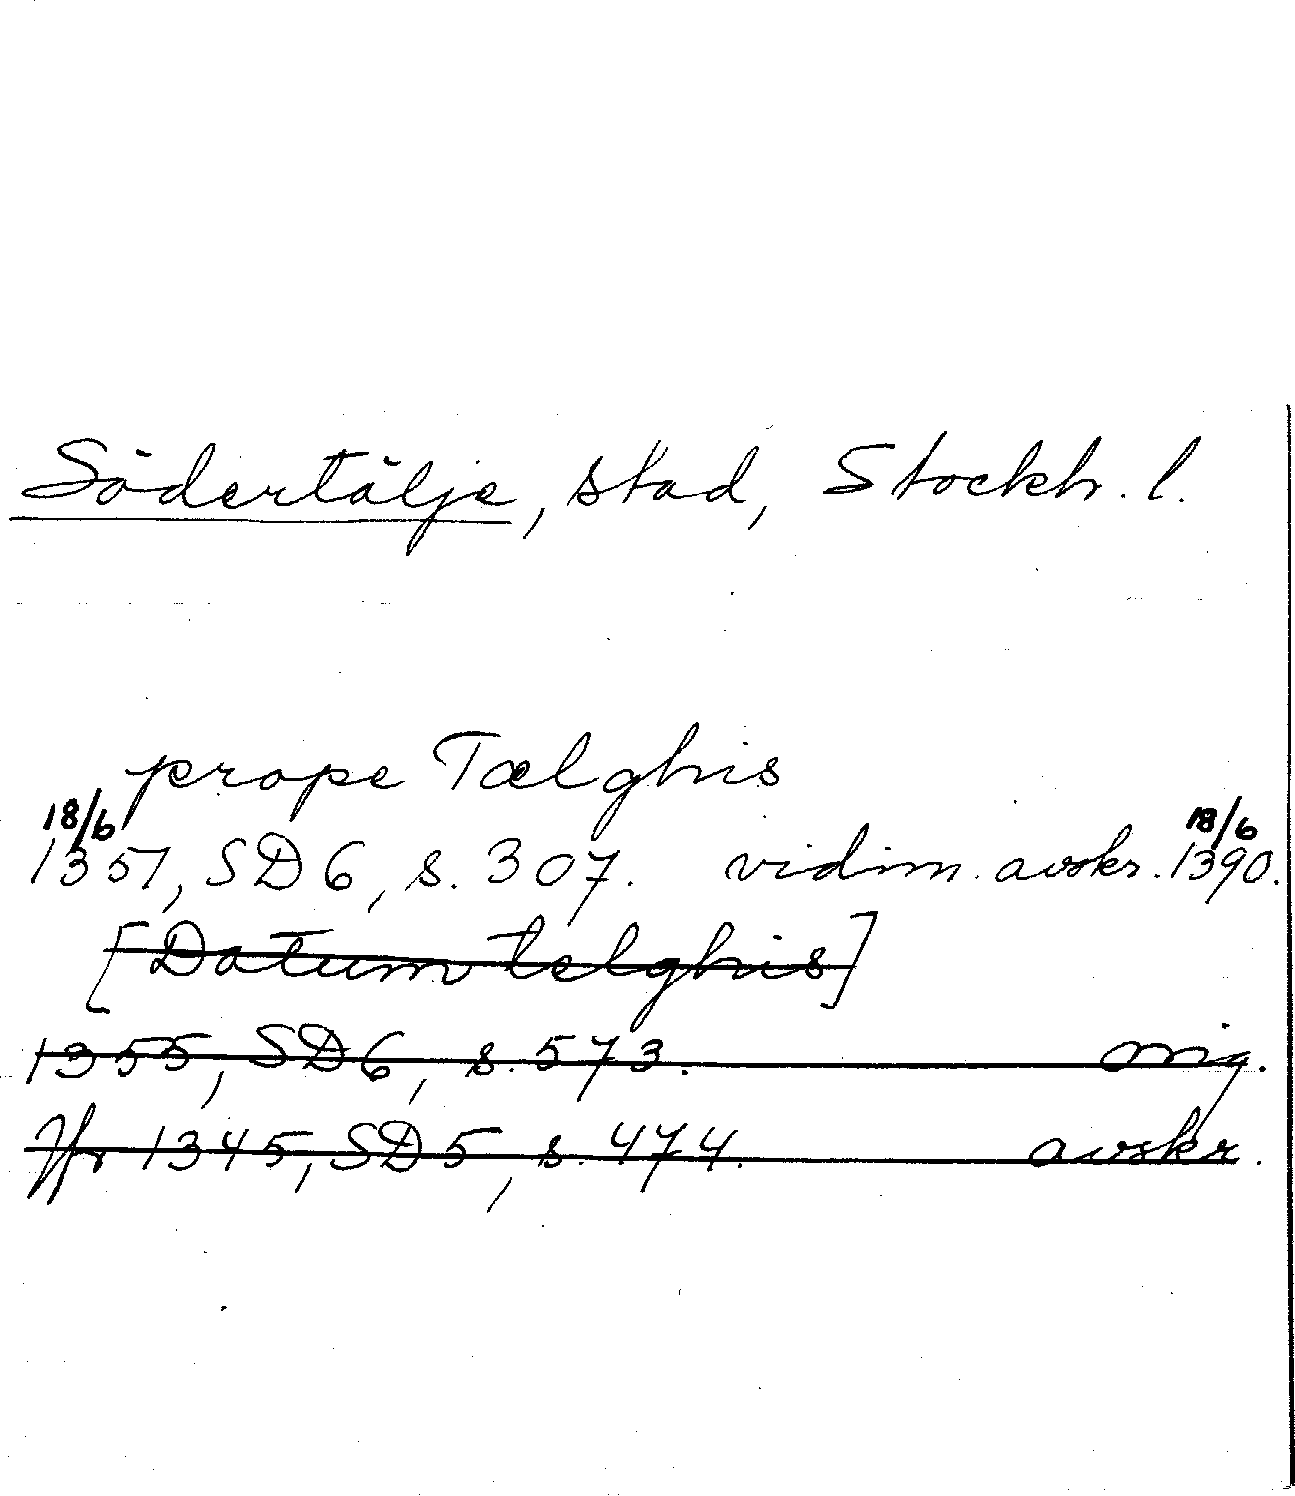 Södertälje, stad, Stockh. l.
prope Tælghis
18/6 18/6
1351, SD 6, s. 307. vidim. avskr. 1390.
[Datum telghis]
1355, SD6, s. 573. orig.
Jfr 1345, SD5, s. 474. avskr.